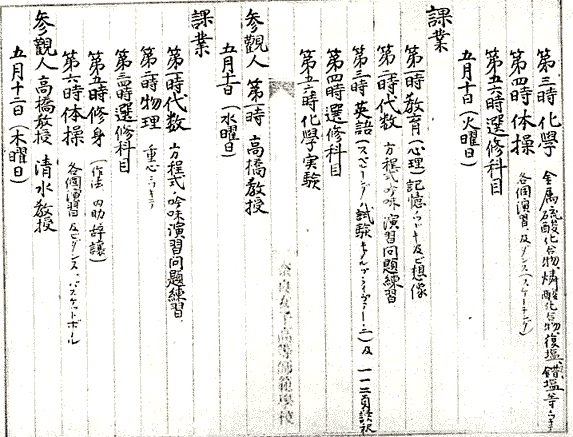 第三時 化學 金属硫酸化合物燐酸化合物復塩、錯塩等
第四時 体操 各個演習、及ダンス(スケーチング)
第五六時 選修科目
五月十日(火曜日)
課業
第一時 教育(心理)記憶 及ビ想像
第二時 代数 方程式ノ吟味 演習問題練習
第三時 英語(スペーリング)試験 及 一一二頁
第四時 選修科目
第五六時 化學実験
参觀人 第一時 高橋教授
五月十一日(水曜日)
課業
第一時 代数 方程式ノ吟味 演習問題練習
第二時 物理 重心
第三四時 選修科目
第五時 修身(作法)
第六時 体操 各個演習 及ビダンス、バスケットボール
参觀人 高橋教授 清水教授
五月十二日(木曜日)
奈良女子高等師範學校